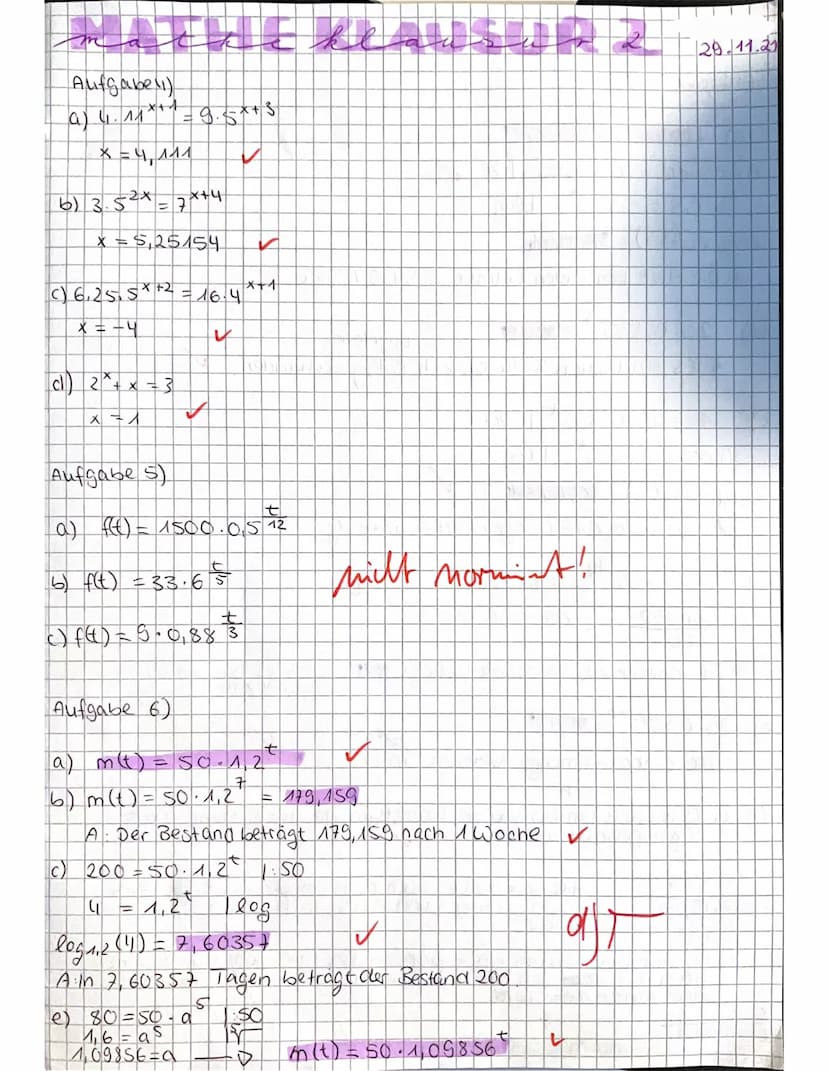 MATHE KLAUSUR 2
mathe klausur
29.11.21
Aufgabe 4)
a) 4·11^(x+1) = 9·5^(x+3)
x = 4,111 ✓
b) 3·5^(2x) = 7^(x+4)
x = 5,25154 ✓
c) 6,25·5^(x+2) = 16·4^(x+1)
x = -4 ✓
d) 2^x + x = 3
x = 1 ✓
Aufgabe 5)
a) f(t) = 1500·0,5^(t/12)
b) f(t) = 33·6^(t/5)
nicht normiert!
c) f(t) = 5·0,88^(t/3)
Aufgabe 6)
a) m(t) = 50·1,2^t ✓
b) m(t) = 50·1,2^7 = 179,159
A: Der Bestand beträgt 179,159 nach 1 Woche ✓
c) 200 = 50·1,2^t |:50
4 = 1,2^t |log
log1,2(4) = 7,60357 ✓
d)
A: In 7,60357 Tagen beträgt der Bestand 200.
e) 80 = 50·a^5 |:50
1,6 = a^5 |⁵√
1,09856 = a → m(t) = 50·1,09856^t ✓